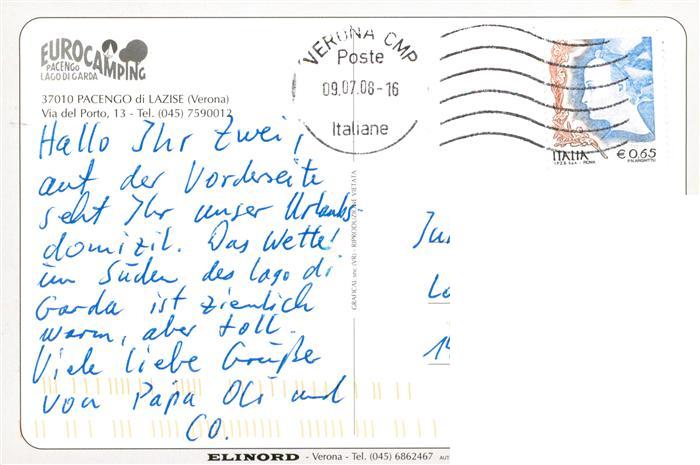 EUROCAMPING
PACENGO
LAGO DI GARDA
37010 PACENGO di LAZISE (Verona)
Via del Porto, 13 - Tel. (045) 7590012
VERONA CMP
Poste
09.07.08-16
Italiane
ITALIA
€ 0,65
I.P.Z.S. S.p.A. - ROMA
P.N. ARGHITTU
Hallo Ihr Zwei,
auf der Vorderseite
seht Ihr unser Urlaubs-
domizil. Das Wetter
im Süden des Lago di
Garda ist ziemlich
warm, aber toll.
Viele liebe Grüße
von Papa Oli und
CO.
GRAFICAL snc (VR) - RIPRODUZIONE VIETATA
Lo
14
ELINORD - Verona - Tel. (045) 6862467